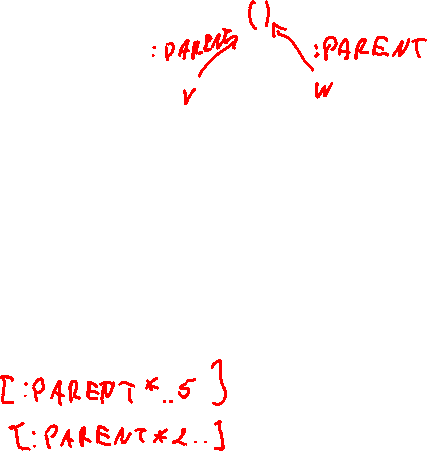 ()
:PARENT :PARENT
v w
[:PARENT*..5]
[:PARENT*2..]